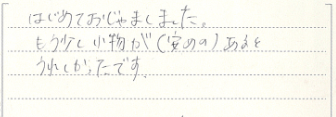 はじめておじゃましました。
もう少し小物が(安めの)あると
うれしかったです.